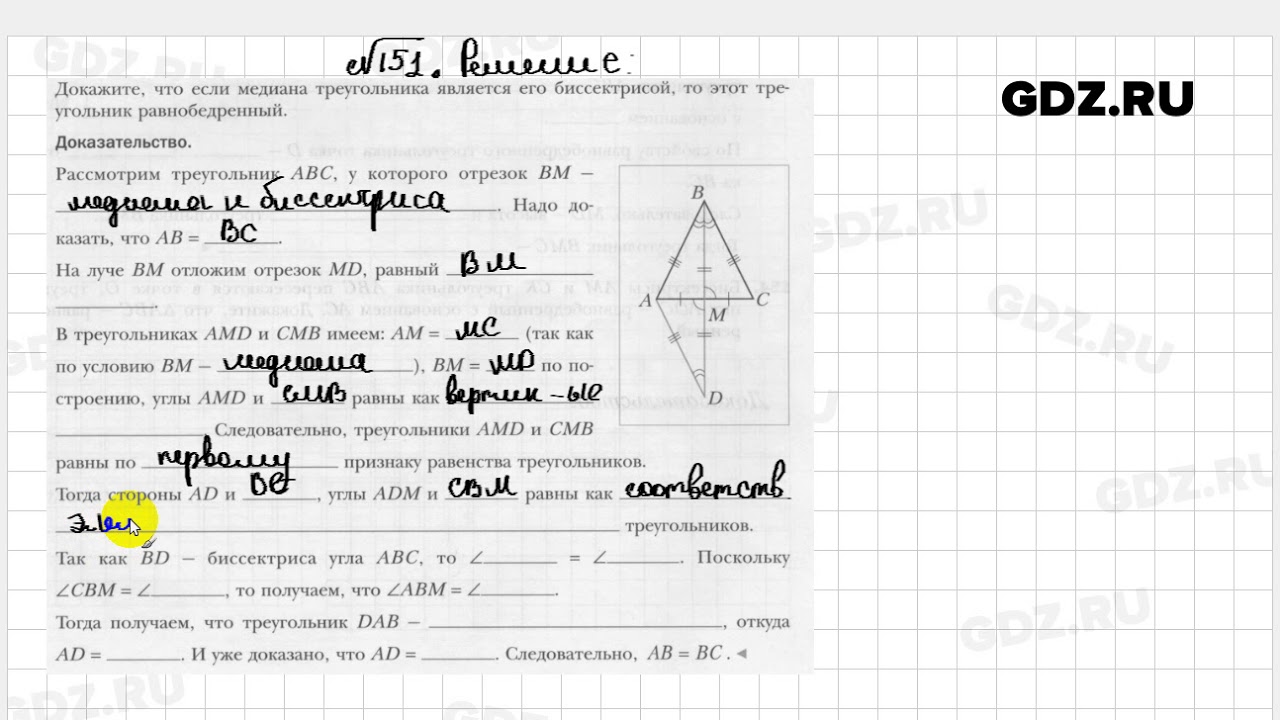 №151. Решение:
GDZ.RU
Докажите, что если медиана треугольника является его биссектрисой, то этот тре-
угольник равнобедренный.
Доказательство.
Рассмотрим треугольник ABC, у которого отрезок BM –
медиана и биссектриса. Надо до-
казать, что AB = BC.
На луче BM отложим отрезок MD, равный BM
.
В треугольниках AMD и CMB имеем: AM = MC (так как
по условию BM – медиана), BM = MD по по-
строению, углы AMD и CMB равны как вертик-ые
Следовательно, треугольники AMD и CMB
равны по первому признаку равенства треугольников.
Тогда стороны AD и BC, углы ADM и CBM равны как соответств
треугольников.
Так как BD – биссектриса угла ABC, то ∠ = ∠. Поскольку
∠CBM = ∠, то получаем, что ∠ABM = ∠.
Тогда получаем, что треугольник DAB – , откуда
AD = . И уже доказано, что AD = . Следовательно, AB = BC. ◄
B
A
C
M
D